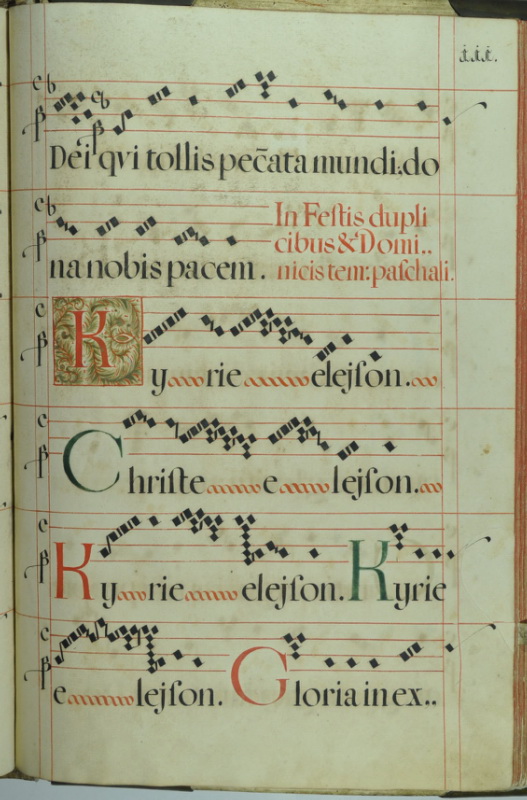 iii.
Dei qvi tollis pec̃ata mundi:do
na nobis pacem.
In Feſtis dupli
cibus & Domi..
nicis tem: paſchali.
Ky rie elejſon.
Chriſte e lejſon.
Ky rie elejſon. Kyrie
e lejſon. Gloria in ex..